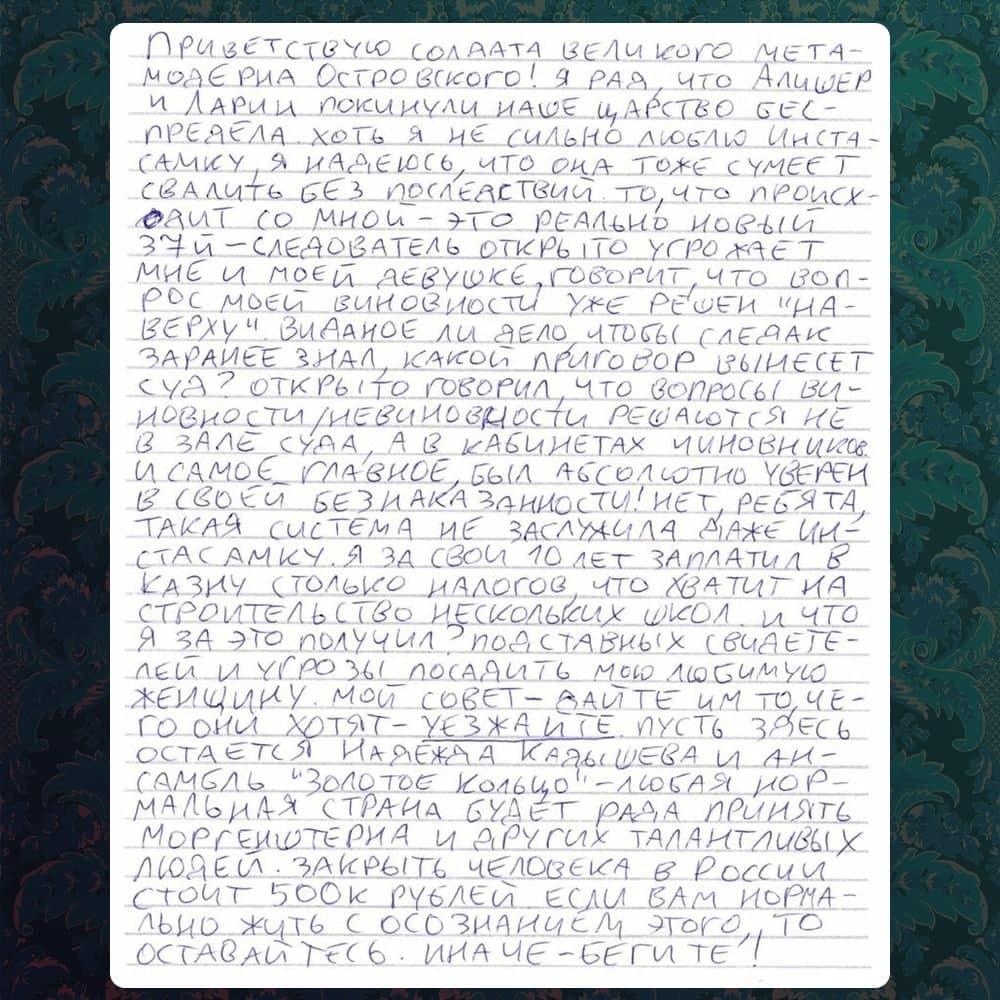 Приветствую солдата великого мета-
модерна Островского! Я рад, что Алишер
и Ларин покинули наше царство бес-
предела. Хоть я не сильно люблю Инста-
самку, я надеюсь, что она тоже сумеет
свалить без последствий. То, что происх-
одит со мной – это реально новый
37й – следователь открыто угрожает
мне и моей девушке, говорит, что воп-
рос моей виновности уже решен "на-
верху". Виданое ли дело, чтобы следак
заранее знал, какой приговор вынесет
суд? Открыто говорил, что вопросы ви-
новности/невиновности решаются не
в зале суда, а в кабинетах чиновников.
И самое главное, был абсолютно уверен
в своей безнаказанности! Нет, ребята,
такая система не заслужила даже Ин-
стасамку. Я за свои 10 лет заплатил в
казну столько налогов, что хватит на
строительство нескольких школ. И что
я за это получил? Подставных свидете-
лей и угрозы посадить мою любимую
женщину. Мой совет – дайте им то, че-
го они хотят – уезжайте. Пусть здесь
остается Надежда Кадышева и ан-
самбль "Золотое кольцо" – любая нор-
мальная страна будет рада принять
Моргенштерна и других талантливых
людей. Закрыть человека в России
стоит 500к рублей. Если вам норма-
льно жить с осознанием этого, то
оставайтесь. Иначе – бегите!